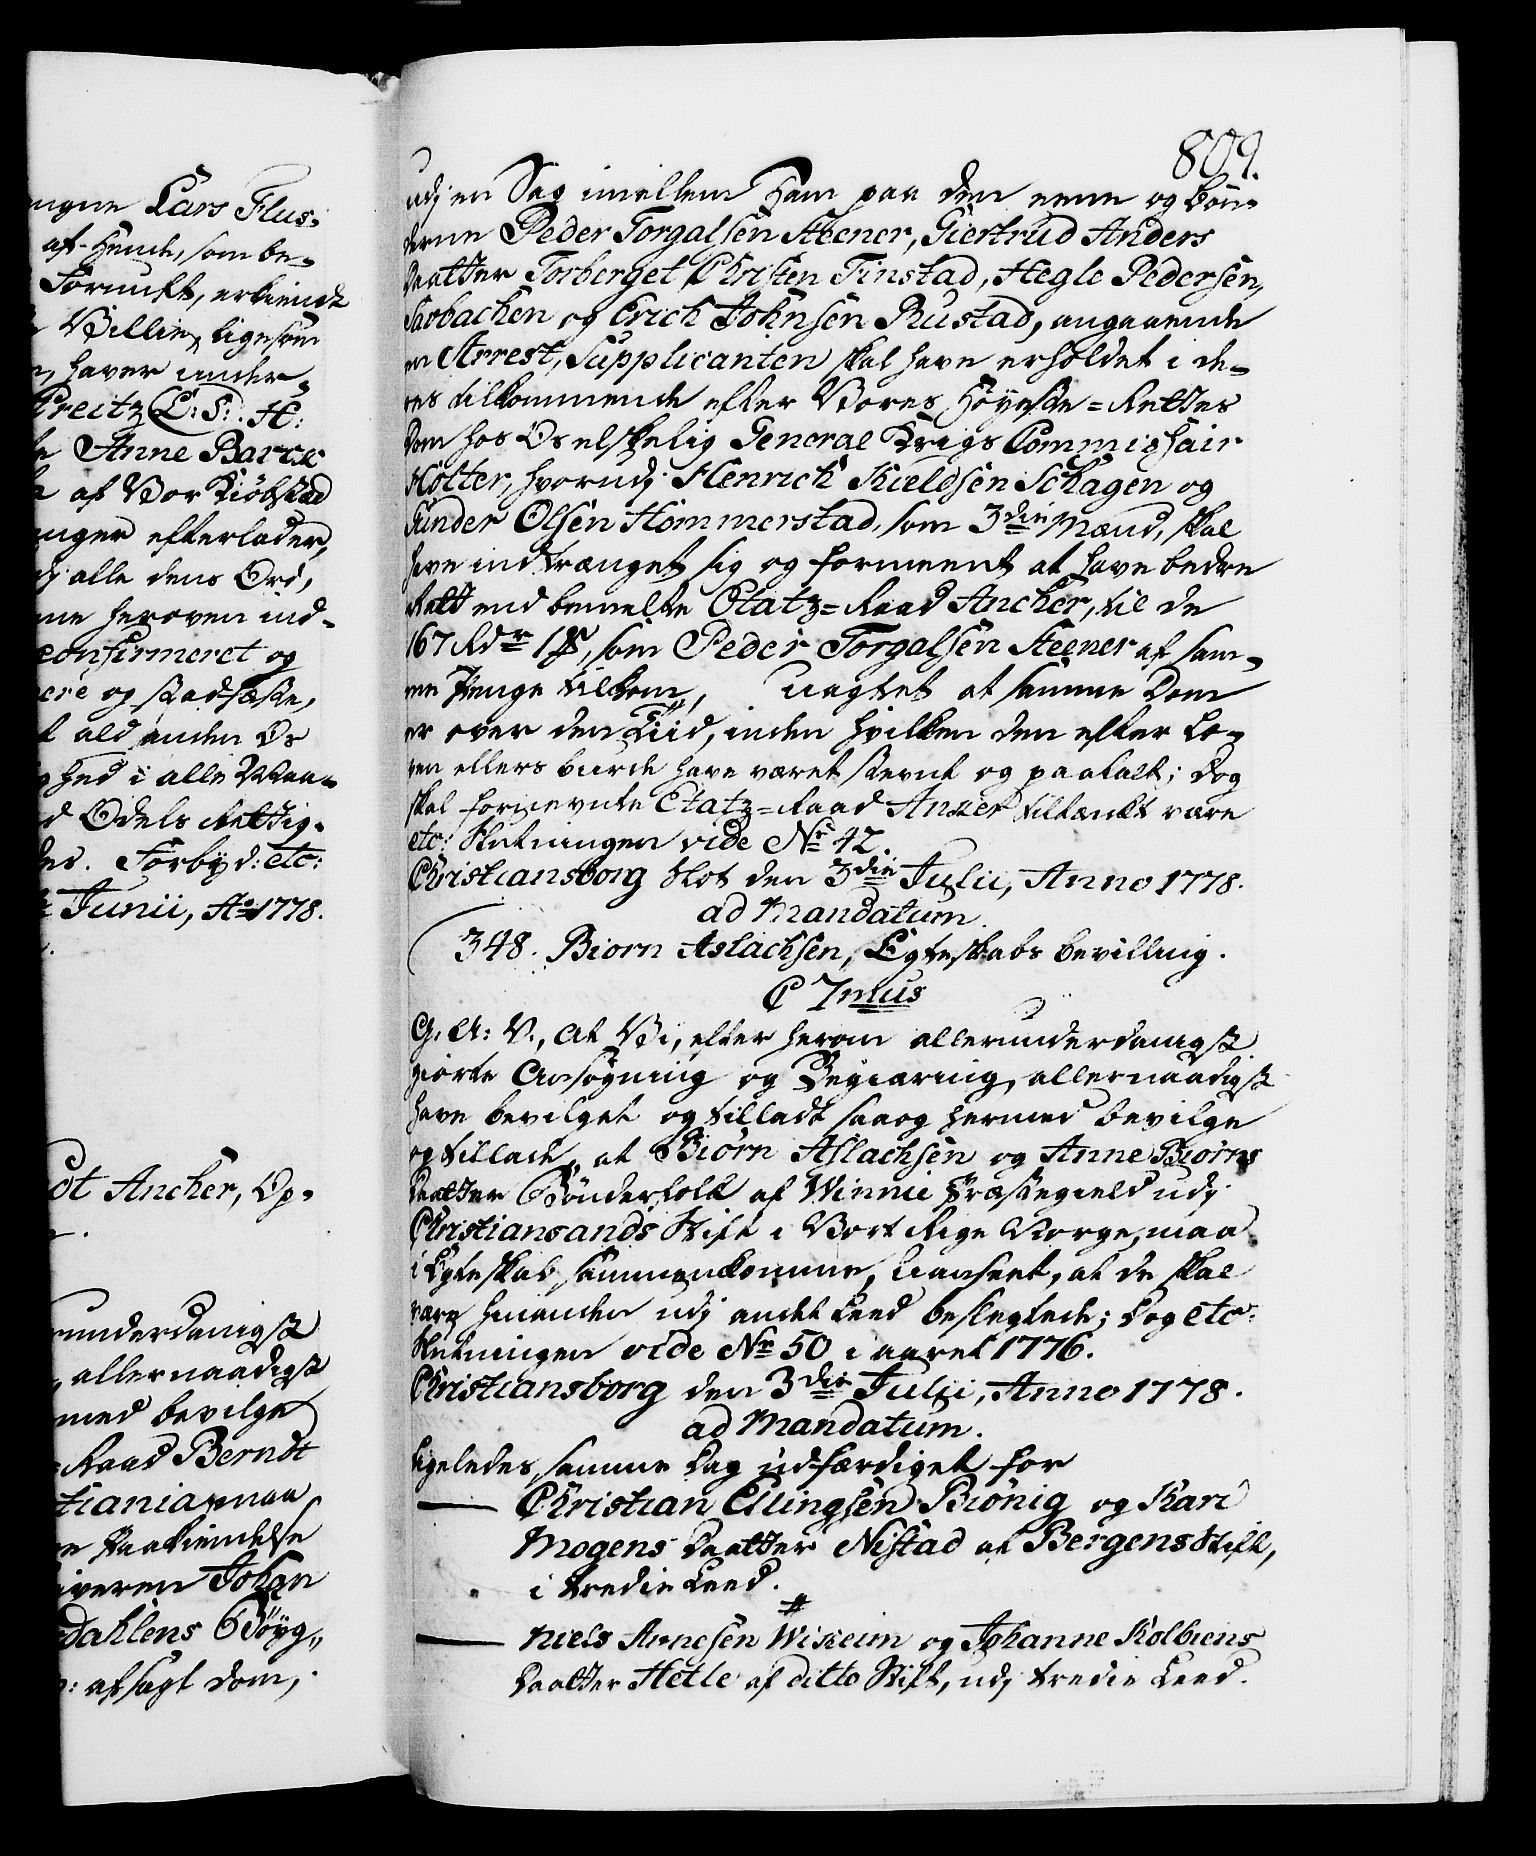 ungne Lars Flus-
af Hende, som be-
Fornuft, erkiendt
Villie, ligesom
haver under-
Kreitz (L: S:) H:
Anne Barck
af Vor Kiøbstad
anger efterlader,
udj alle dens Ord,
me heroven ind-
confirmeret og
cere og stadfæste,
ald anden Os
ghed i alle Maa-
d Odels Rettig-
der. Forbyd: etc:
Junii, Ao 1778.
dt Ancher, Op-
runderdanigst
, allernaadigst
med bevilge
Raad Berndt
tiania, maa
Paakiendelse
iveren Johan
dahlens Bøyg„
: afsagt Dom,
809.
udj en Sag imellem Ham paa den eene og Bøn-
derne Peder Torgalsen Steener, Giertrud Anders
Daatter Torberget, Christen Finstad, Hegle Pedersen,
Saobachen og Erich Johnsen Rustad, angaaende
en Arrest, Supplicanten skal have erholdet i de-
res tilkommende efter Vores Høyeste-Rettes
Dom hos Os elskelig General Krigs Commissair
Holter, hvorudj Henrich Kieldsen Schagen og
Gunder Olsen Hommerstad, som 3die Mænd, skal
have indtrænget sig og formeent at have bedre
Rett end bemelte Etatz-Raad Ancher, til de
167 Rdr 1 ß, som Peder Torgalsen Steener af sam-
me Penge tilkom, uagtet at samme Dom
er over den Tiid, inden hvilken den efter Lo-
ven ellers burde have været stevnt og paatalt; Dog
skal fornevnte Etatz-Raad Anker tiltænkt være
etc: Slutningen vide No 42.
Christiansborg Slot den 3die Julii, Anno 1778.
ad Mandatum.
348. Biorn Aslachsen, Egteskabs Bevilling.
C 7mus
G. A: V., at Vi, efter herom allerunderdanigst
giorte Ansøgning og Begiæring, allernaadigst
have bevilget og tilladt saaog hermed bevilge
og tillade, at Biørn Aslachsen og Anne Biørns
Daatter Bønderfolk af Winnie Præstegield udj
Christiansands Stift i Vort Rige Norge, maa
i Egteskab sammenkomme, uanseet, at de skal
være hinanden udj andet Leed beslegtede; Dog etc:
Slutningen vide Nr 50 i aaret 1776.
Christiansborg den 3die Julii, Anno 1778.
ad Mandatum.
Ligeledes samme Dag udfærdiget for
— Christian Ellingsen Biønig og Kari
Mogens Daatter Nistad af Bergens Stift,
i tredie Leed.
— Niels Arnesen Wikeim og Johanne Kolbiens
Daatter Hetle af ditto Stift, udj tredie Leed.